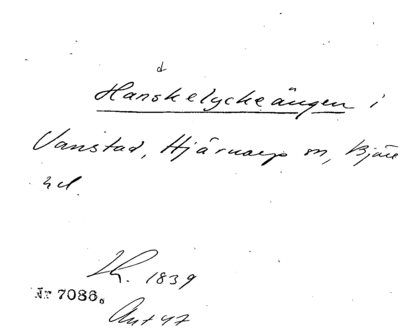 d
Hanskelyckeängen i
Vanstad, Hjärnarp sn, Bjäre
hd.
Lh. 1839
Nr 7086.
Ant 47